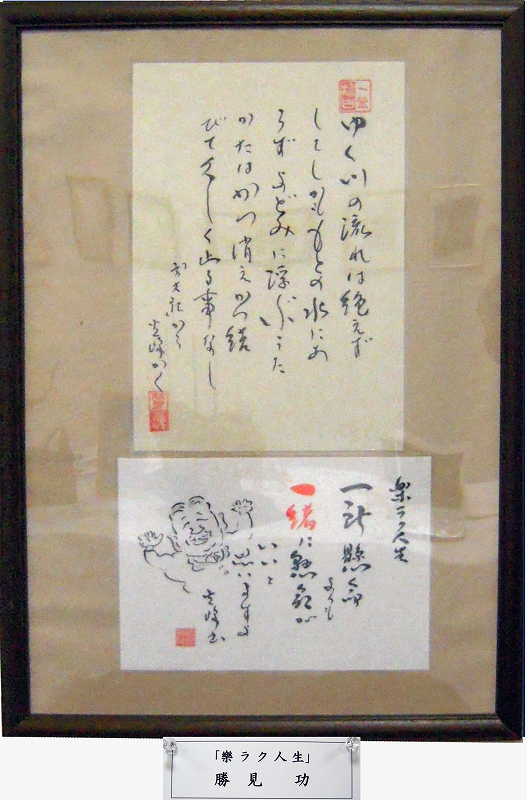 ゆく川の流れは絶えず
してしかももとの水にあ
らずよどみに浮ぶうた
かたはかつ消えかつ結
びて久しく止る事なし
方丈記から
かく
楽ラク人生
一所懸命
よりも
一緒に懸命が
いいと
思いますよ
「樂ラク人生」
勝見 功